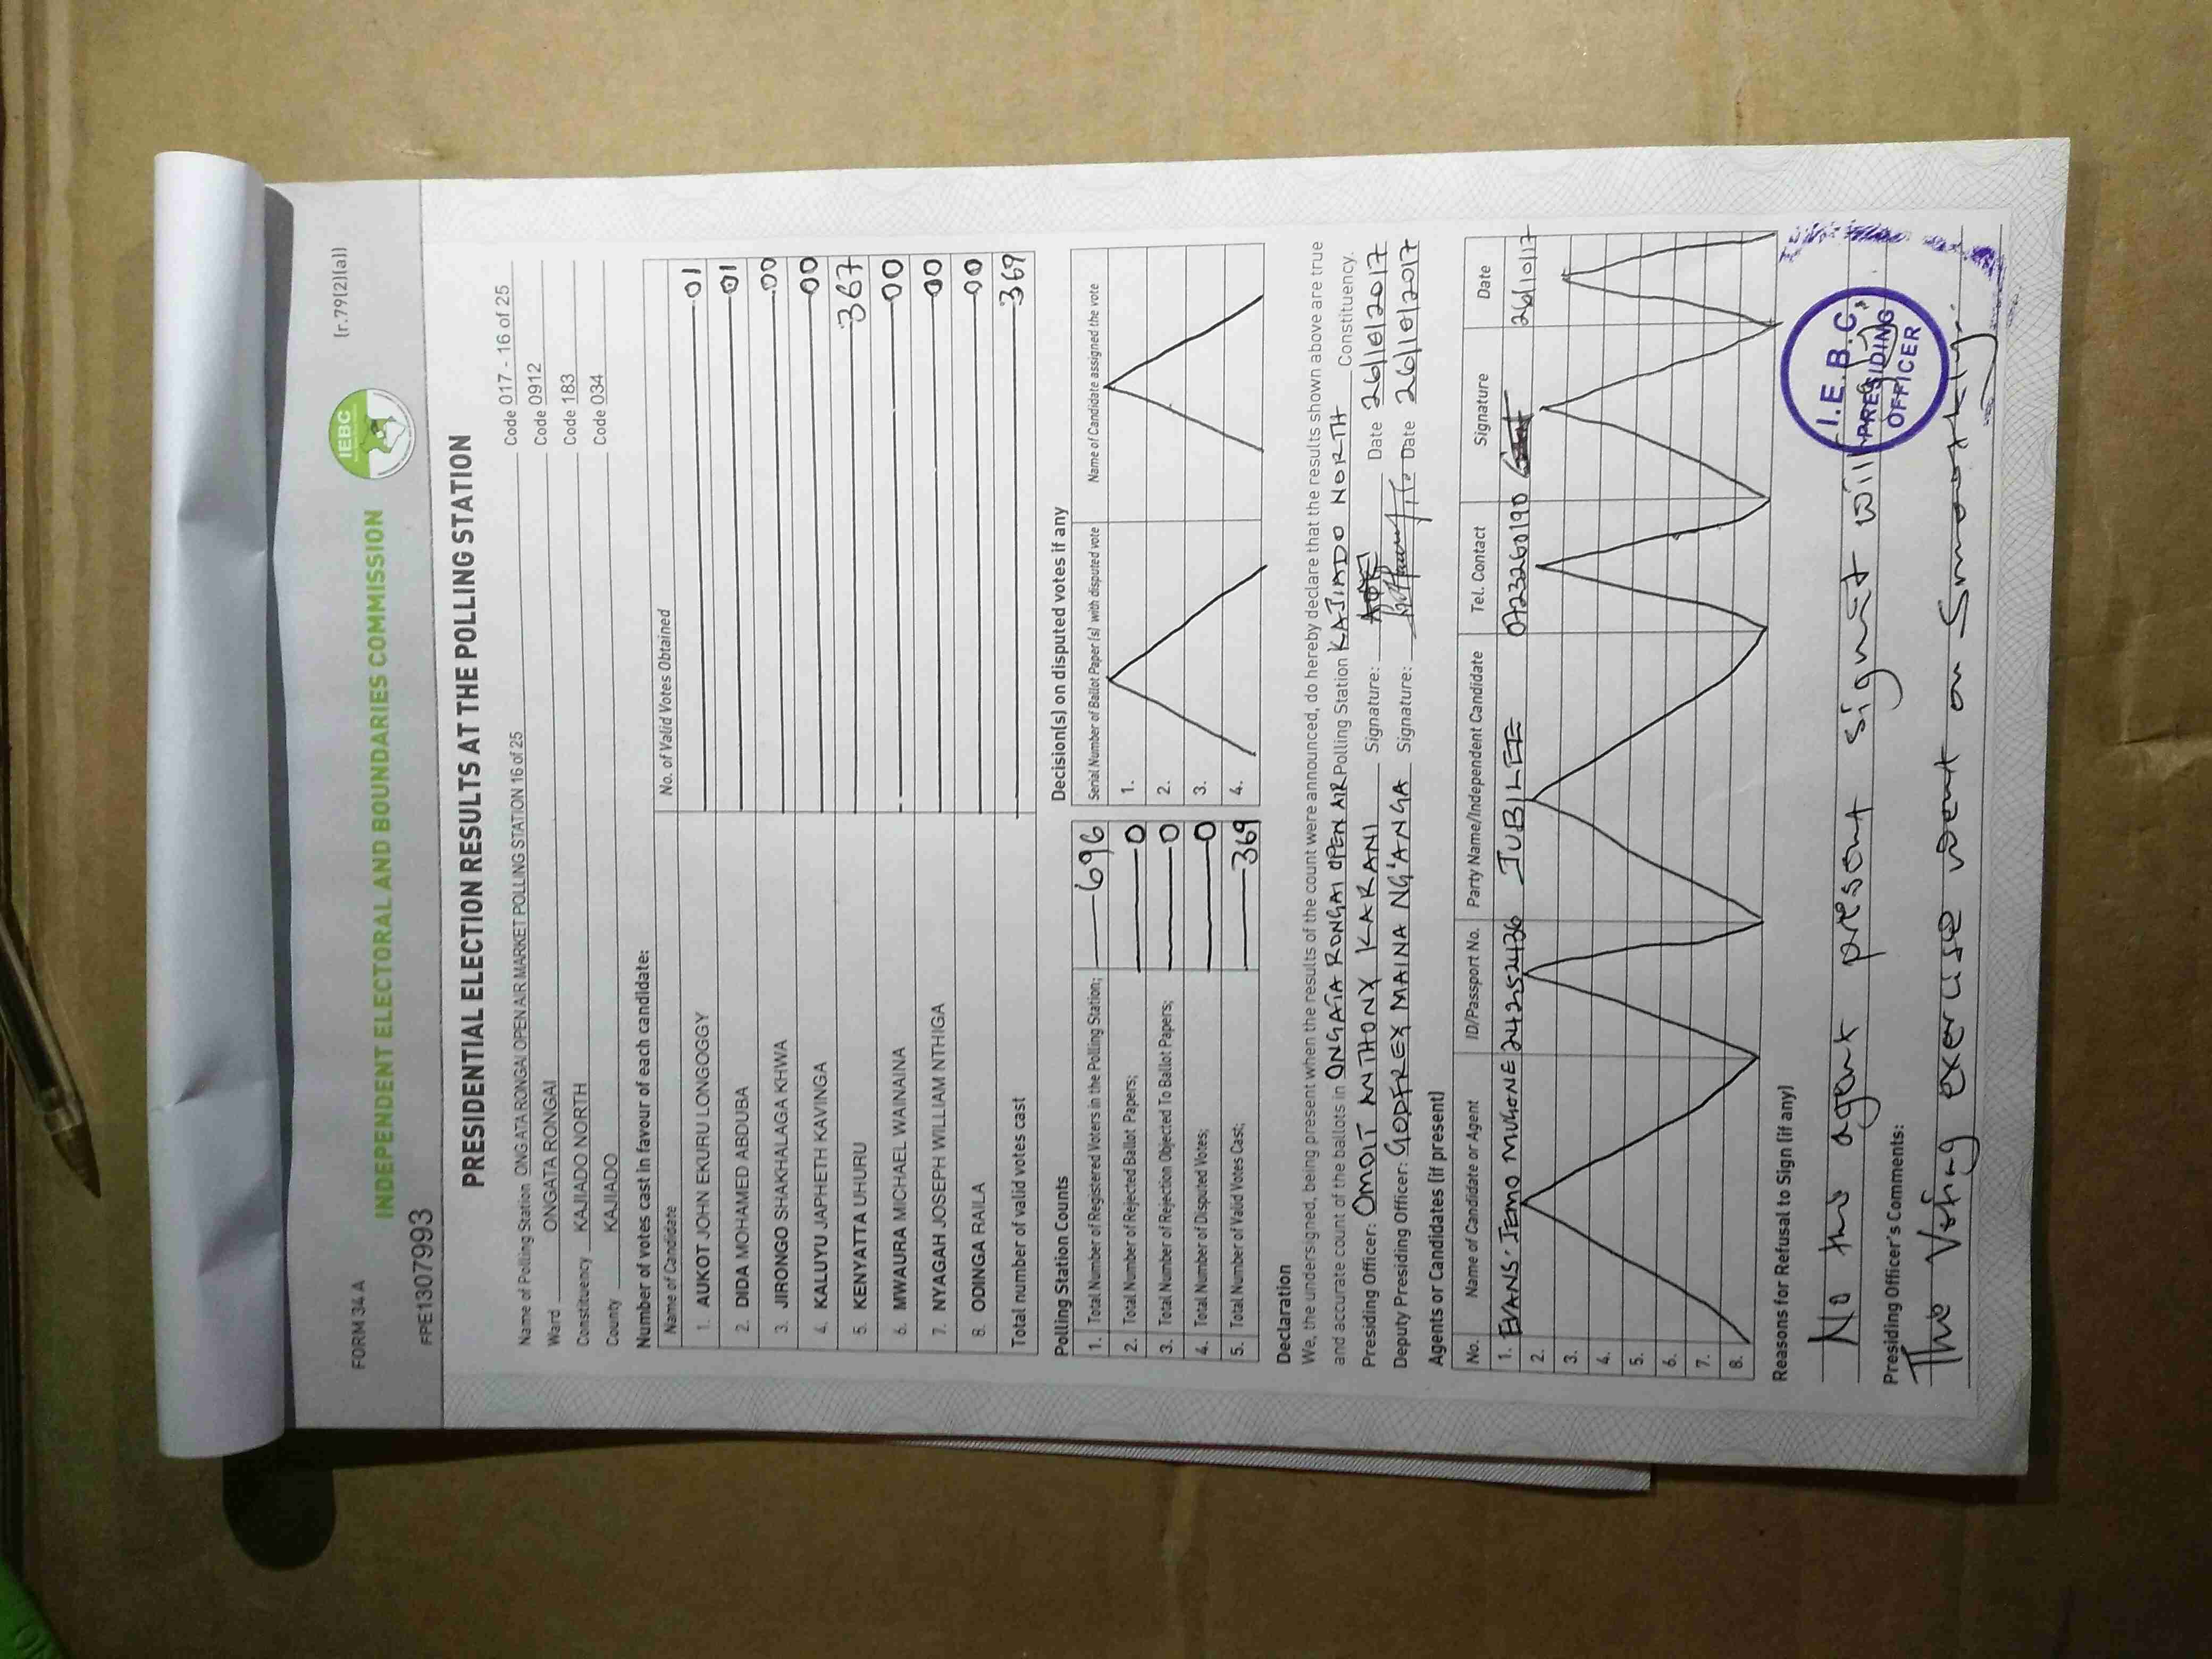 FORM 34 A
(r.79(2)(a))
IEBC
INDEPENDENT ELECTORAL AND BOUNDARIES COMMISSION
FPE1307993
PRESIDENTIAL ELECTION RESULTS AT THE POLLING STATION
Name of Polling Station ONGATA RONGAI OPEN AIR MARKET POLLING STATION 16 of 25 Code 017 - 16 of 25
Ward ONGATA RONGAI Code 0912
Constituency KAJIADO NORTH Code 183
County KAJIADO Code 034
Number of votes cast in favour of each candidate:
Name of Candidate No. of Valid Votes Obtained
1. AUKOT JOHN EKURU LONGOGGY 01
2. DIDA MOHAMED ABDUBA 01
3. JIRONGO SHAKHALAGA KHWA 00
4. KALUYU JAPHETH KAVINGA 00
5. KENYATTA UHURU 367
6. MWAURA MICHAEL WAINAINA 00
7. NYAGAH JOSEPH WILLIAM NTHIGA 00
8. ODINGA RAILA 00
Total number of valid votes cast 369
Polling Station Counts
1. Total Number of Registered Voters in the Polling Station; 696
2. Total Number of Rejected Ballot Papers; 0
3. Total Number of Rejection Objected To Ballot Papers; 0
4. Total Number of Disputed Votes; 0
5. Total Number of Valid Votes Cast; 369
Decision(s) on disputed votes if any
Serial Number of Ballot Paper (s) with disputed vote Name of Candidate assigned the vote
1.
2.
3.
4.
Declaration
We, the undersigned, being present when the results of the count were announced, do hereby declare that the results shown above are true
and accurate count of the ballots in ONGATA RONGAI OPEN AIR Polling Station KAJIADO NORTH Constituency.
Presiding Officer: OMOIT ANTHONY KARANI Signature: Date 26/10/2017
Deputy Presiding Officer: GODFREY MAINA NG'ANGA Signature: Date 26/10/2017
Agents or Candidates (if present)
No. Name of Candidate or Agent ID/Passport No. Party Name/Independent Candidate Tel. Contact Signature Date
1. EVANS JEMO 24252436 JUBILEE 0723260190 26/10/17
2.
3.
4.
5.
6.
7.
8.
Reasons for Refusal to Sign (if any)
No the agent present signit will
Presiding Officer's Comments:
The Voting exercise went on Smoothly.
I.E.B.C.
PRESIDING
OFFICER